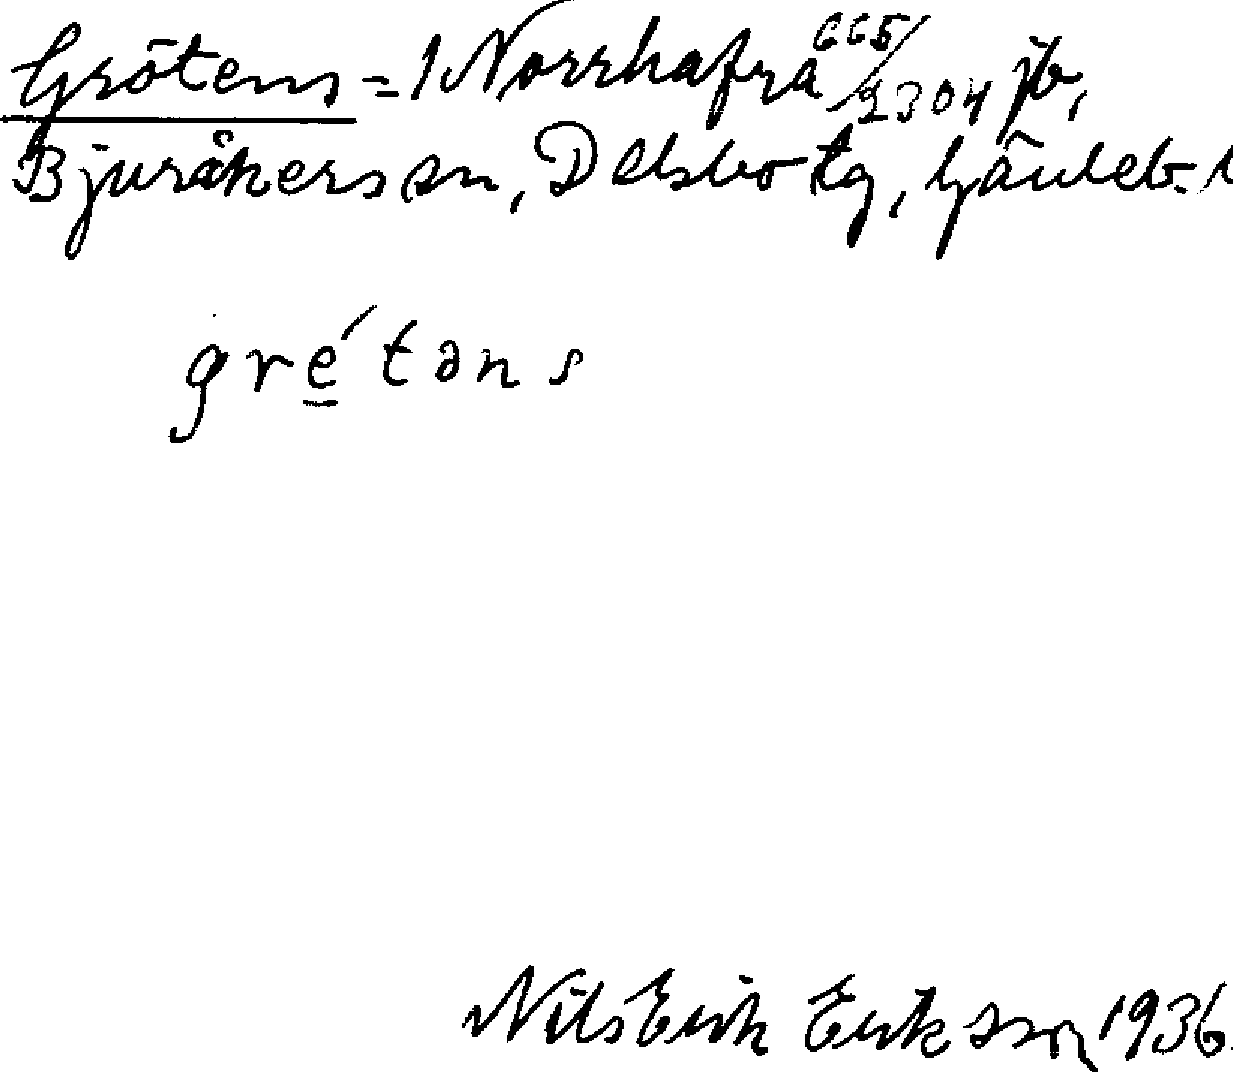 Grötens = 1 Norrhafra 665/2304 jb,
Bjuråkers sn, Delsbo tg, Gävleb. l
gre̲´təns
Nils Erik Eriksson 1936.